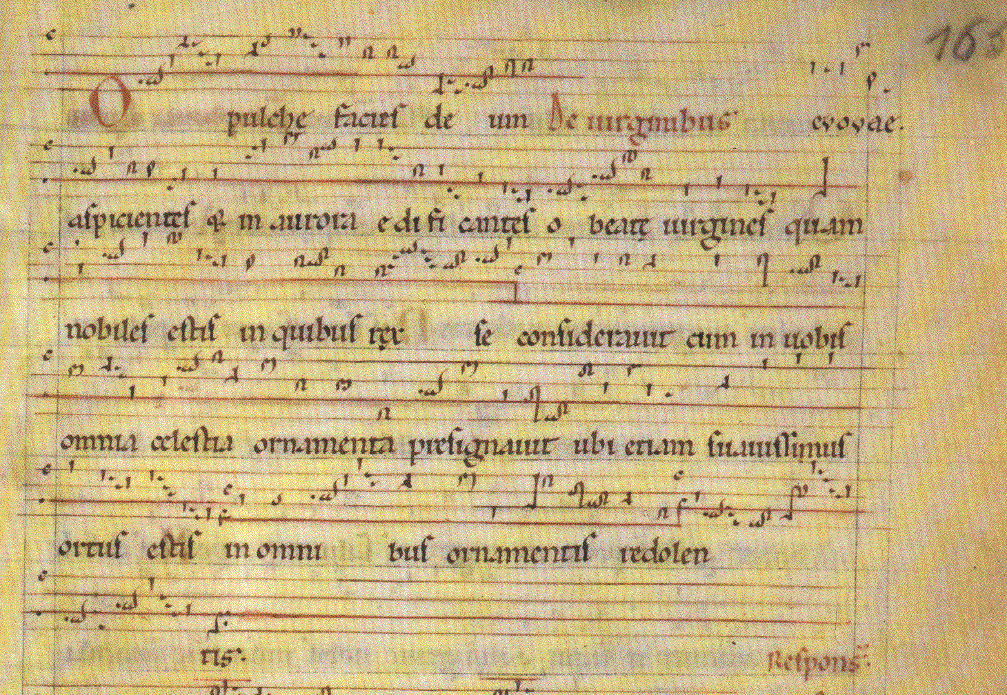 163
O pulchę facies deum De uirginibus evovae.
aspicientes & in aurora edificantes o beatę uirgines quam
nobiles estis in quibus rex se considerauit cum in uobis
omnia celestia ornamenta presignauit ubi etiam suauissimus
ortus estis in omnibus ornamentis redolen
tis. Respons